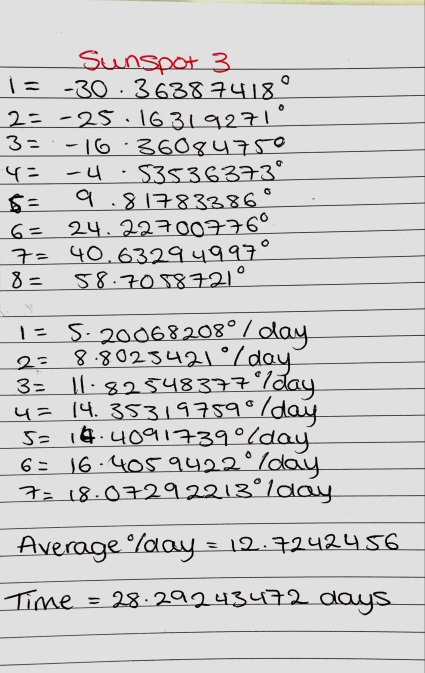 Sunspot 3
1 = -30.36387418°
2 = -25.16319271°
3 = -16.3608475°
4 = -4.53536373°
5 = 9.81783386°
6 = 24.22700776°
7 = 40.63294997°
8 = 58.7058721°
1 = 5.20068208°/day
2 = 8.8023421°/day
3 = 11.82548377°/day
4 = 14.35319759°/day
5 = 14.4091739°/day
6 = 16.4059422°/day
7 = 18.07292213°/day
Average °/day = 12.7242456
Time = 28.29243472 days